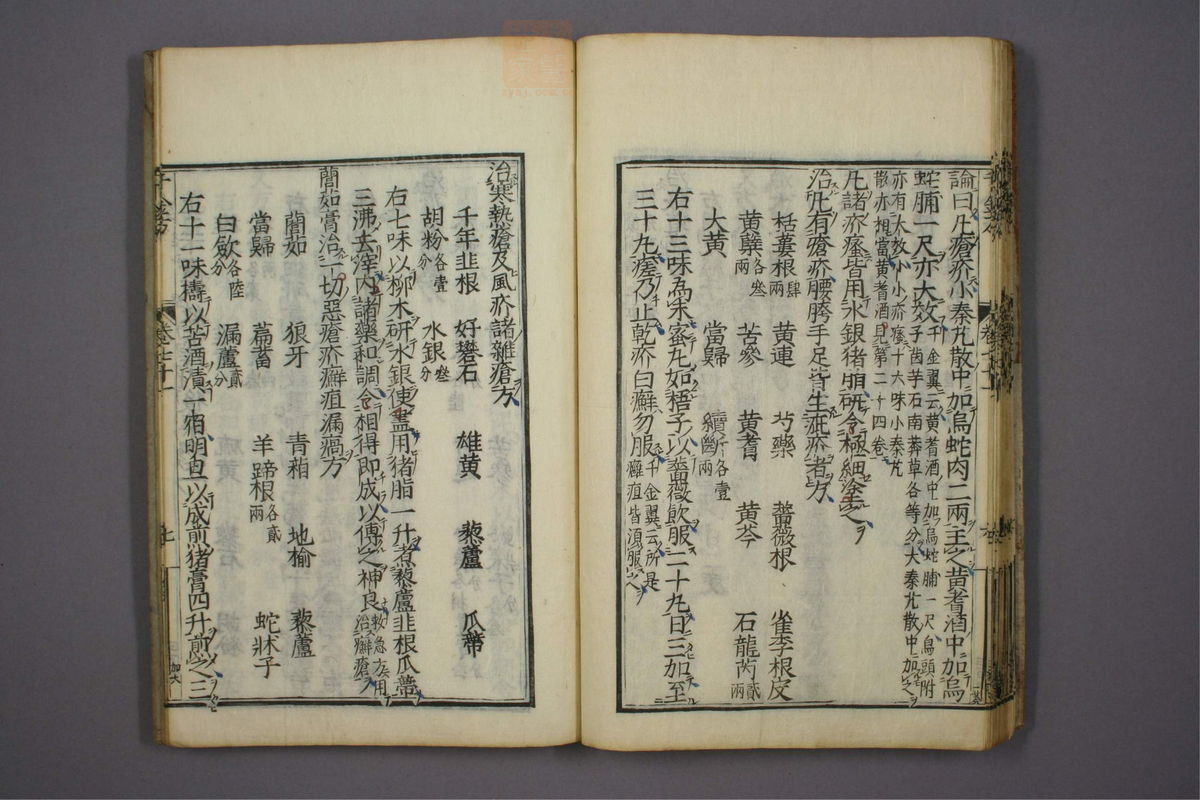 論曰凡瘡疥小秦艽散中加烏蛇肉二兩主之黃耆酒中加烏
蛇脯一尺亦大效千金翼云黃耆酒中加烏蛇脯一尺烏頭附
子茵芋石南莽草各等分大秦艽散中加之
亦有大效小小疥瘙十六味小秦艽
散亦相當黃耆酒見第二十四卷
凡諸疥瘙皆用水銀猪脂研令極細塗之
治凡有瘡疥腰胯手足皆生疵疥者方
栝蔞根肆兩 黃連 芍藥 薔薇根 雀李根皮
黃蘗各叁兩 苦參 黃耆 黃芩 石龍芮貳兩
大黃 當歸 續斷各壹兩
右十三味為末蜜丸如梧子以薔薇飲服二十九日三加至
三十九瘥乃止乾疥白癬勿服千金翼云所是
癰疽皆須服之
治寒熱瘡及風疥諸雜瘡方
千年韭根 好礬石 雄黃 藜蘆 瓜蔕
胡粉各壹分 水銀叁分
右七味以柳木研水銀使盡用猪脂一升煮藜蘆韭根瓜蔕
三沸去滓內諸藥和調令相得即成以傅之神良救急方用
治癬瘡
䕡茹膏治一切惡瘡疥癬疽漏瘑方
䕡茹 狼牙 青葙 地榆 藜蘆
當歸 萹蓄 羊蹄根各貳兩 蛇牀子
白斂各陸分 漏蘆貳分
右十一味擣以苦酒漬一宿明旦以成煎猪膏四升煎之三
卷七十一